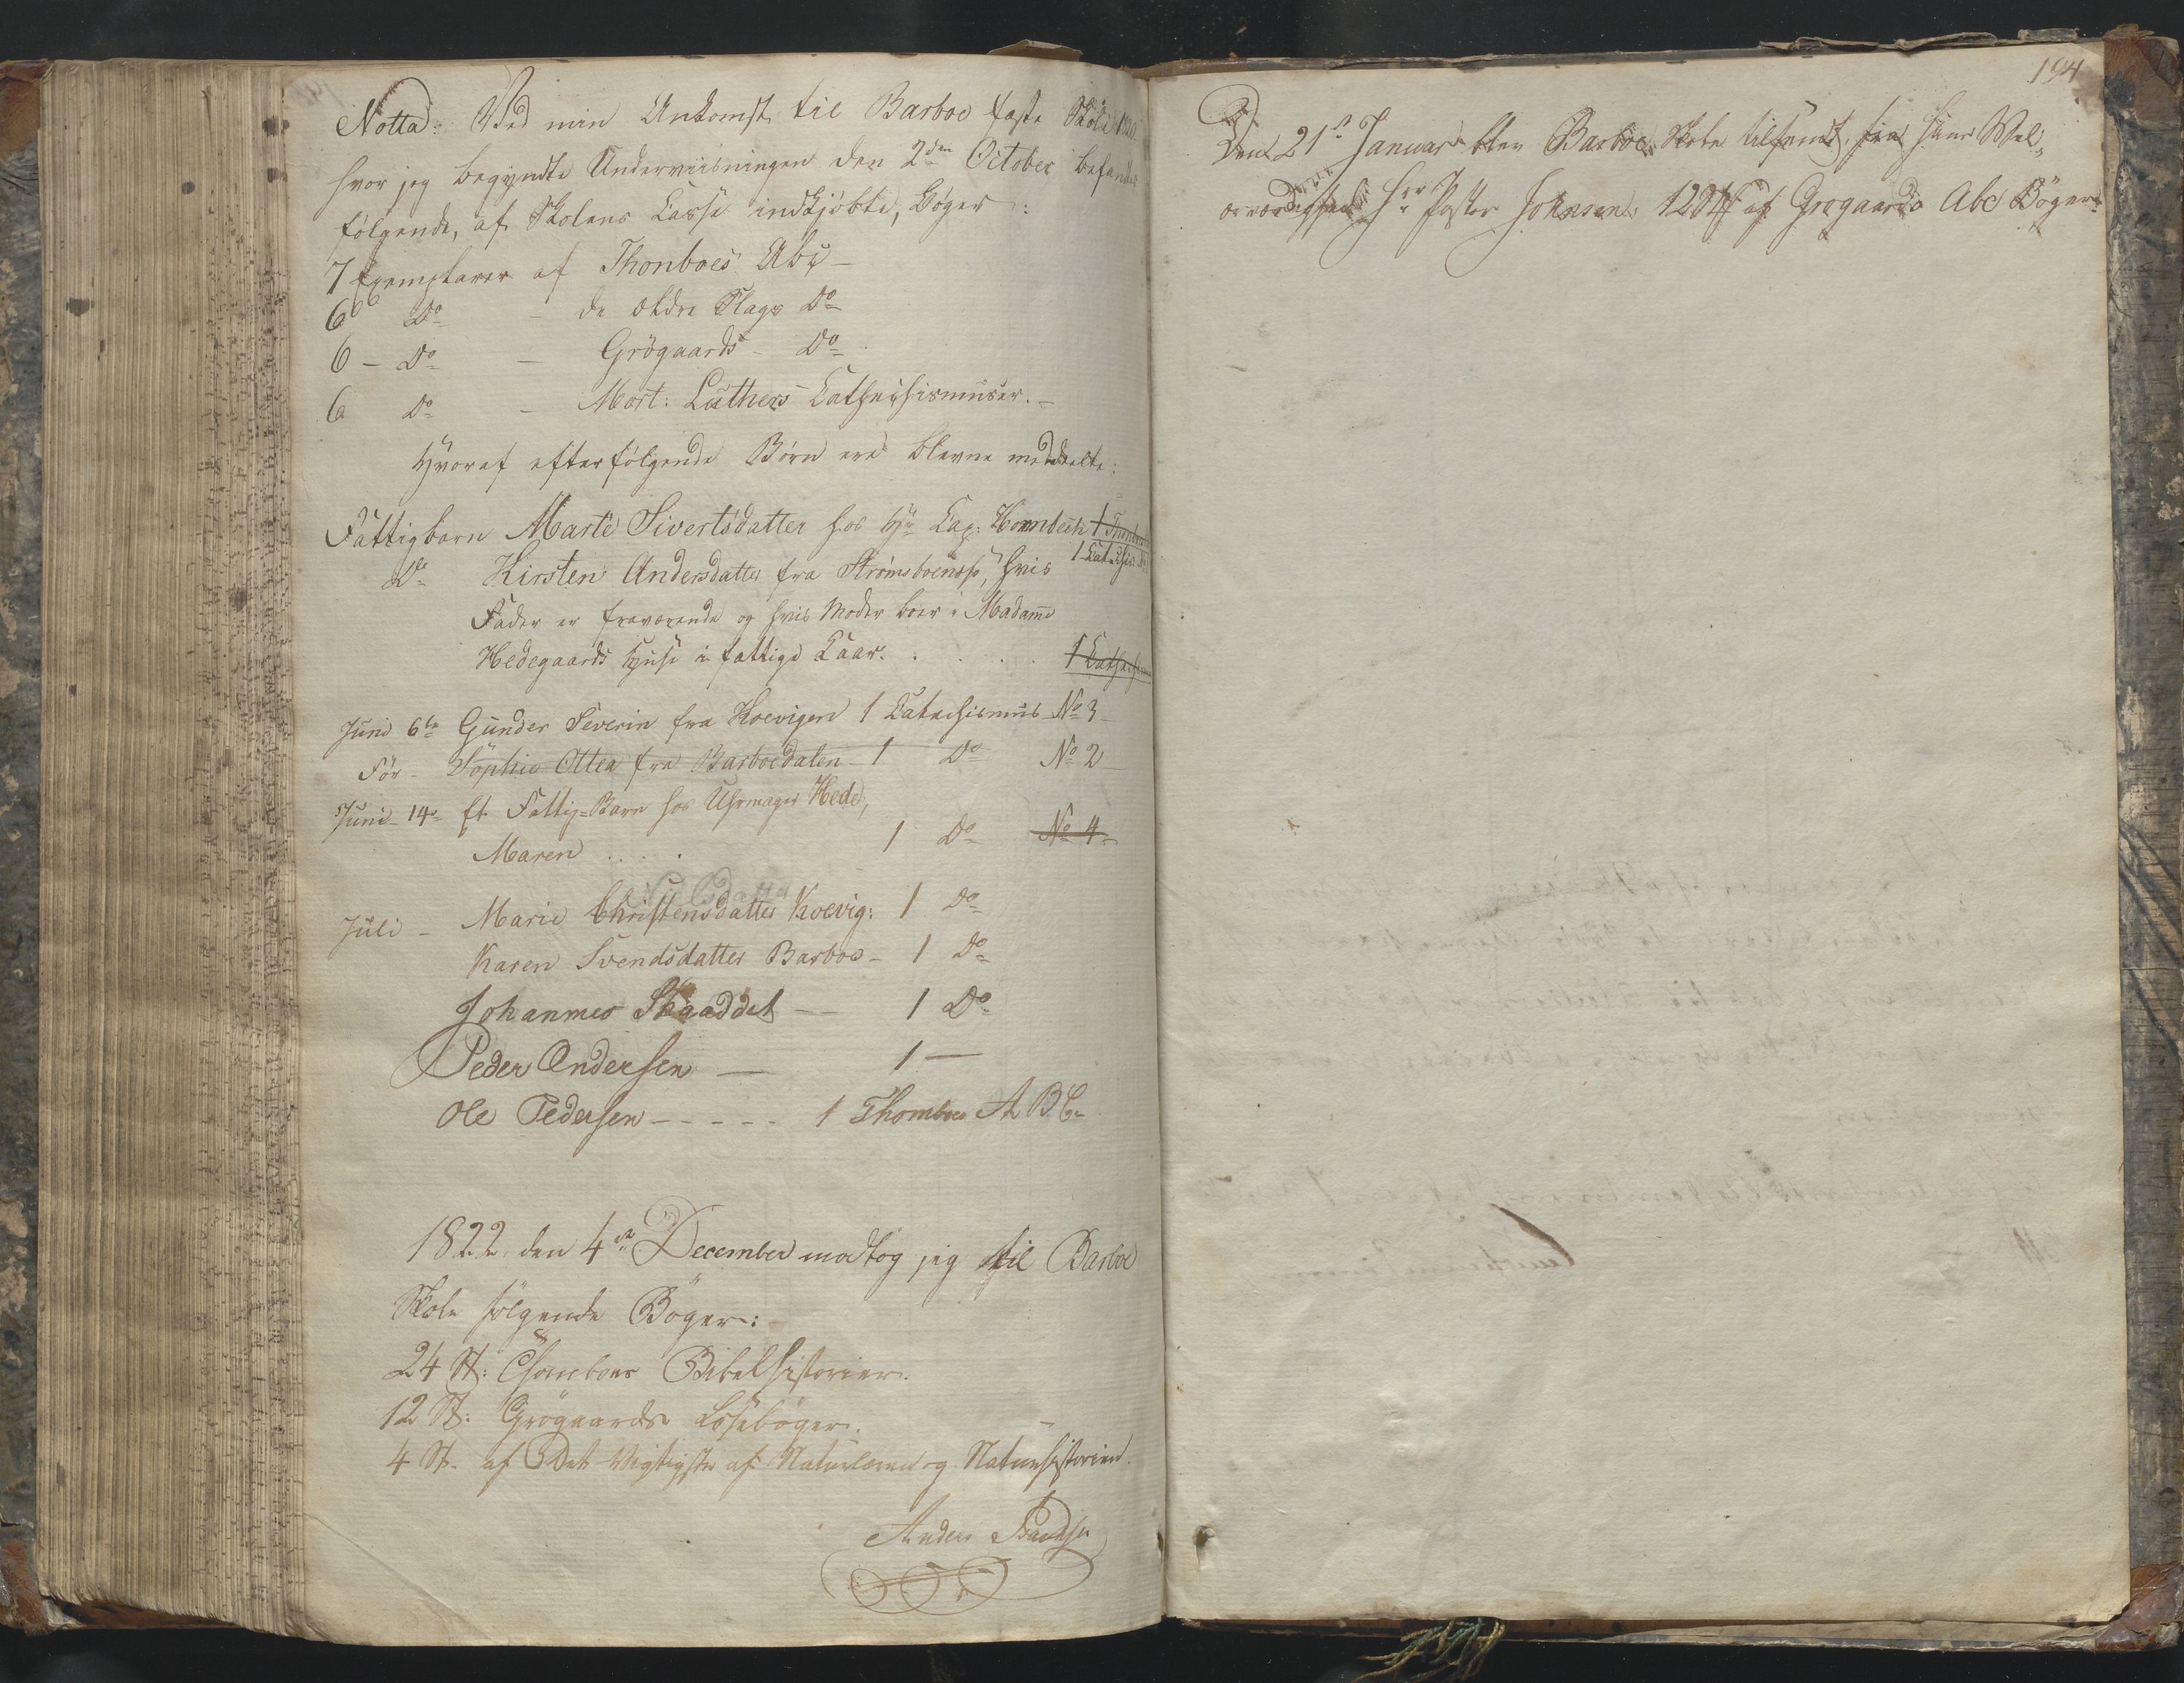 Notta: Ved min Ankomst til Barboe faste Skole
hvor jeg begyndte Underviisningen den 2den October befandtes
følgende, af Skolens Casse indkjøbte, Bøger:
7 Exemplarer af Thonboes Abc –
6 Do – de ældre Slags Do
6 – Do – Grögaards – Do
6 Do – Mort: Luthers Cathechismuser. –
Hvoraf efterfølgende Børn ere blevne meddeelte:
Fattigbarn Marte Sivertsdatter hos Hr Cap: Hornbech 1
Do Kirsten Andersdatter fra Strømsboenæs, hvis
Fader er fraværende og hvis Moder boer i Madame
Hedegaards Huse i fattige Kaar. . . . . 1
Juni 6te Gunder Severin fra Koevigen 1 Catechismus No 3
Før – Sophie Ottea fra Barboedalen – 1 Do No 2
Juni 14. Et Fattig-Barn hos Uhrmager Hede,
Maren . . . . 1 Do No 4
Juli – Marie Christensdatter Koevig: 1 Do
Karen Svendsdatter Barboe – 1 Do
Johannes Skaaddet – – 1 Do
Peder Andersen — 1 —
Ole Pedersen – – – – – 1 Thomboes A B C
1822 den 4de December modtog jeg til Barboe
Skole følgende Bøger:
24 St: Thonboes Bibelhistorier.
12 St: Grögaards Læsebøger.
4 St. af Det Vigtigste af Naturlæren og Naturhistorien.
Anders
194
Den 21de Januar blev Barboe Skole tilsendt fra Hans Vel-
ærværdighed Hrr Pastor Johnsen 12 St af Grøgaards Abc Bøger